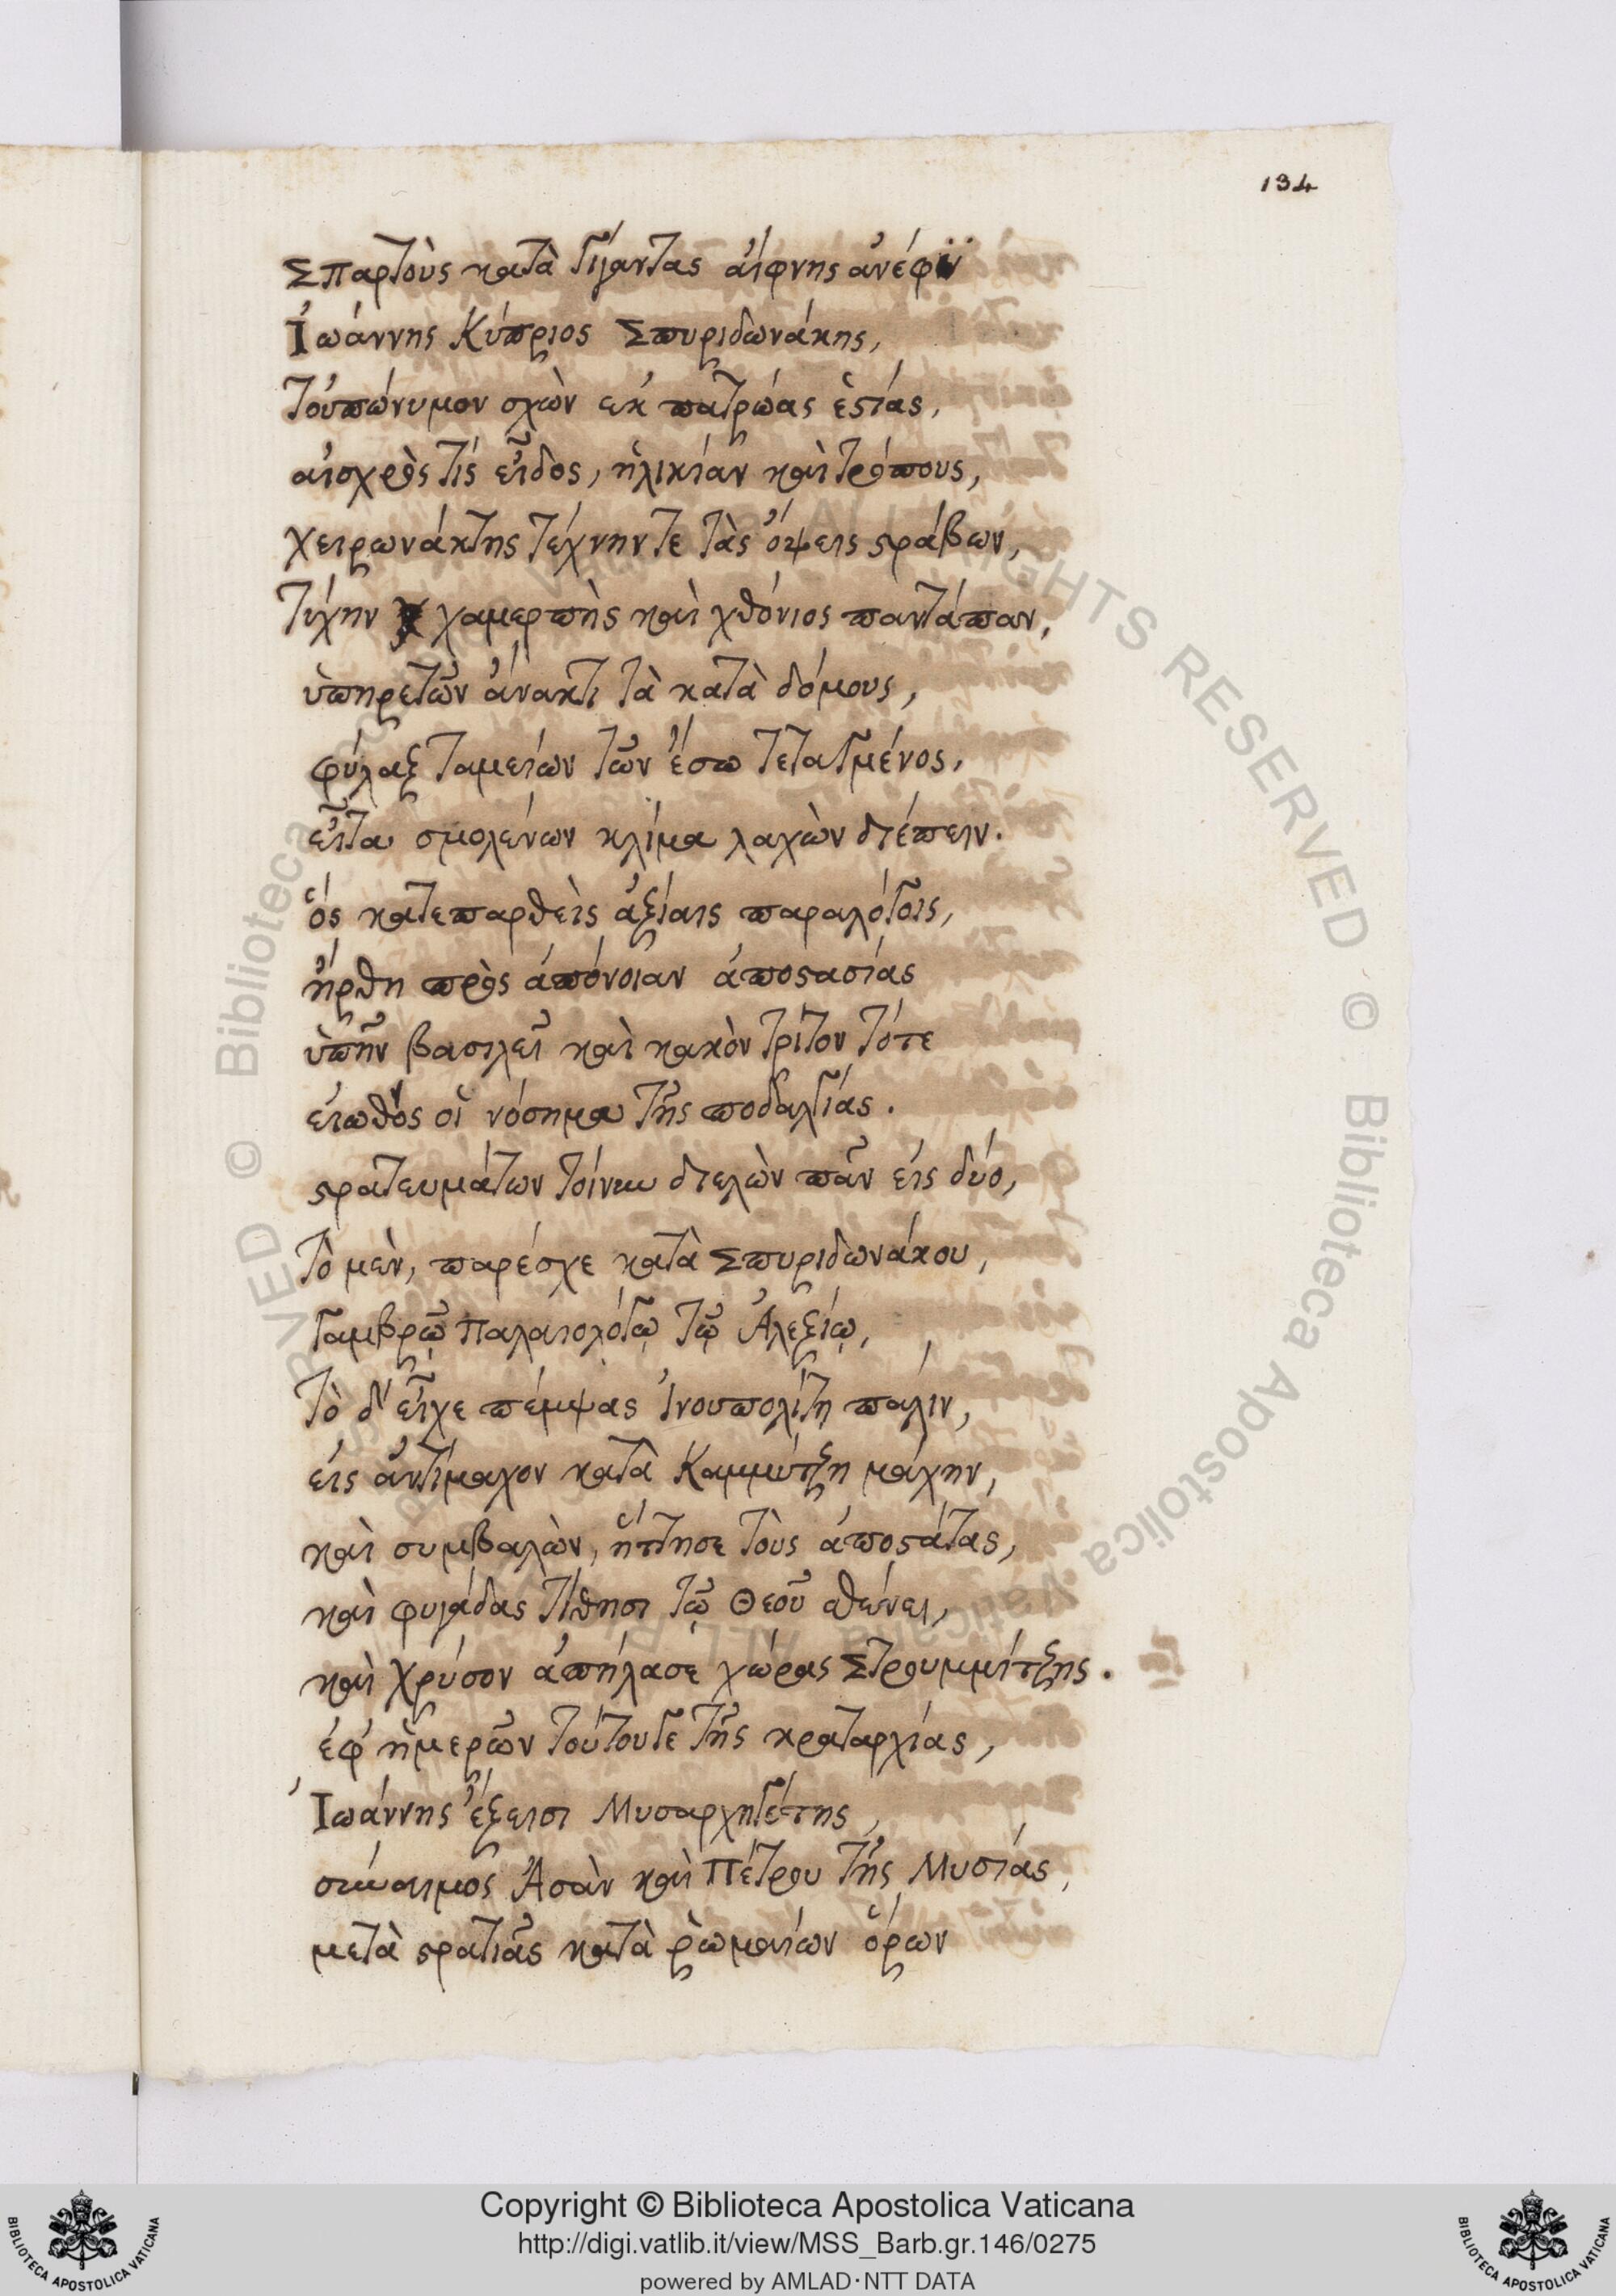 134
Σπαρτοὺς κατὰ Γίγαντας αἴφνης ἀνέφϋ
Ἰωάννης Κύπριος Σπυριδωνάκης,
Τοὐπώνυμον σχὼν ἐκ πατρῴας ἑστίας,
αἰσχρὸς τίς εἶδος, ἡλικίαν καὶ τρόπους,
χειρωνάκτης τέχνην τε τὰς ὄψεις στράβων,
Τύχην χαμερπὴς καὶ χθόνιος παντάπαν,
ὑπηρετῶν ἄνακτι τὰ κατὰ δόμους,
φύλαξ ταμείων τῶν ἔσω τεταγμένος,
εἶτα σμολένων κλίμα λαχὼν διέπειν.
ὃς κατεπαρθεὶς ἀξίαις παραλόγοις,
ἤρθη πρὸς ἀπόνοιαν ἀποστασίας
ὑπῆν βασιλεῖ καὶ κακὸν τρίτον τότε
εἰωθός οἱ νόσημα τῆς ποδαλγίας.
στρατευμάτων τοίνυν διελὼν πᾶν εἰς δύο,
Τὸ μὲν, παρέσχε κατὰ Σπυριδωνάκου,
Γαμβρῷ Παλαιολόγῳ τῷ Ἀλεξίῳ,
Τὸ δ' εἶχε πέμψας Ἰνουπολίτῃ πάλιν,
εἰς ἀντίμαχον κατὰ Καμμύτζη μάχην,
καὶ συμβαλὼν, ἥττησε τοὺς ἀποστάτας,
καὶ φυγάδας τίθησι τῷ Θεοῦ σθένει,
καὶ Χρύσον ἀπήλασε χώρας Στρουμμίτζης.
ἐφ' ἡμερῶν τούτου γε τῆς κραταρχίας,
Ἰωάννης ἔξεισι Μυσαρχηγέτης,
σύναιμος Ἀσὰν καὶ Πέτρου τῆς Μυσίας,
μετὰ στρατιᾶς κατὰ ῥωμαίων ὅρων
© Biblioteca Apostolica Vaticana ALL RIGHTS RESERVED
Copyright © Biblioteca Apostolica Vaticana
http://digi.vatlib.it/view/MSS_Barb.gr.146/0275
powered by AMLAD·NTT DATA
BIBLIOTECA APOSTOLICA VATICANA
BIBLIOTECA APOSTOLICA VATICANA